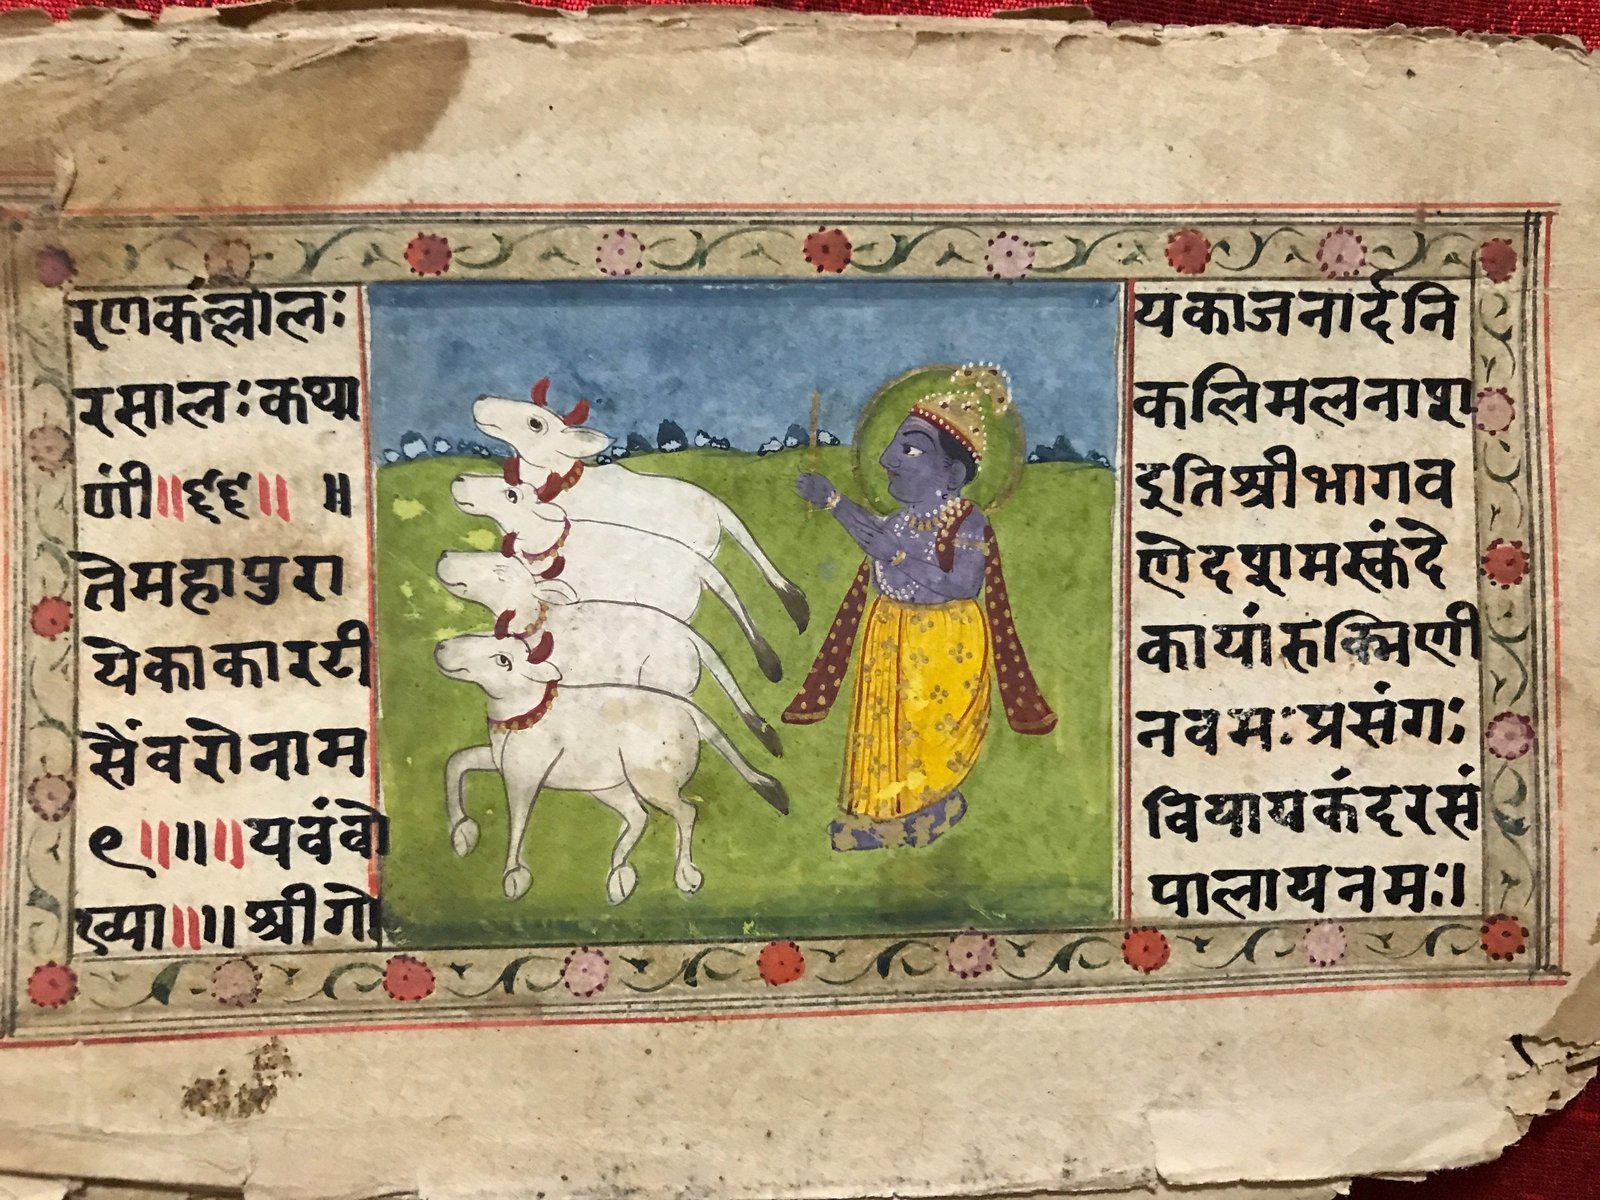 रणकल्लोलः यकाजनार्दनि
रसालःकथा कलिमलनाश
णी॥६६॥ ॥ इतिश्रीभागव
तेमहापुरा णेदशमस्कंदे
येकाकारटी कायांरुक्मिणी
सैंवरोनाम नवमःप्रसंगः
९॥॥॥यवंवो
ख्या॥॥श्रीगो पालायनमः॥